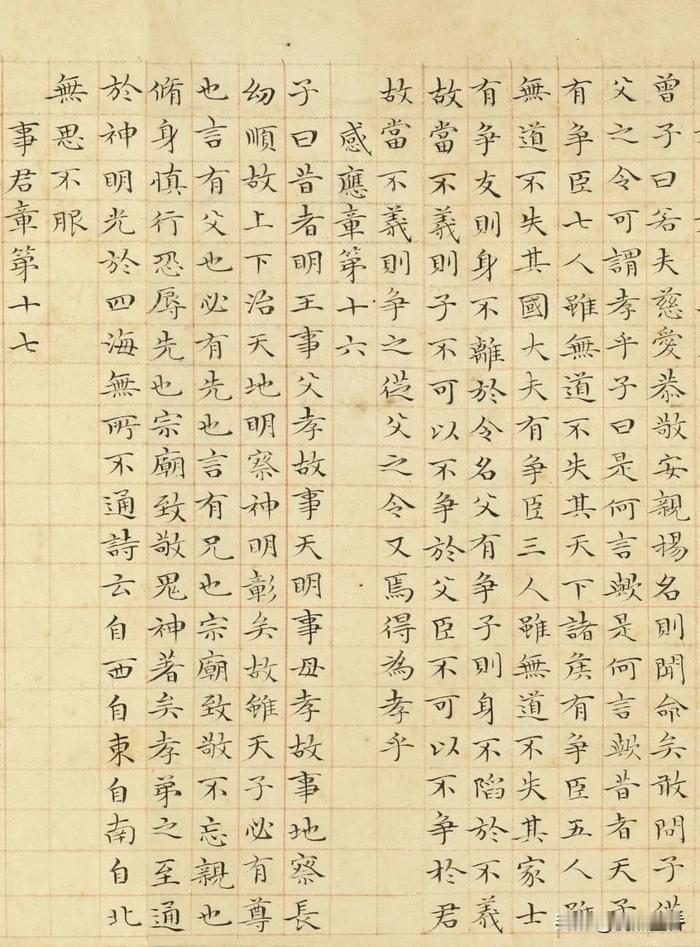 曾子曰若夫慈愛恭敬安親揚名則聞命矣敢問子從
父之令可謂孝乎子曰是何言歟是何言歟昔者天子
有争臣七人雖無道不失其天下諸侯有争臣五人雖
無道不失其國大夫有争臣三人雖無道不失其家士
有争友則身不離於令名父有争子則身不陷於不義
故當不義則子不可以不争於父臣不可以不争於君
故當不義則争之從父之令又焉得為孝乎
感應章第十六
子曰昔者明王事父孝故事天明事母孝故事地察長
幼順故上下治天地明察神明彰矣故雖天子必有尊
也言有父也必有先也言有兄也宗廟致敬不忘親也
脩身慎行恐辱先也宗廟致敬鬼神著矣孝弟之至通
於神明光於四海無所不通詩云自西自東自南自北
無思不服
事君章第十七